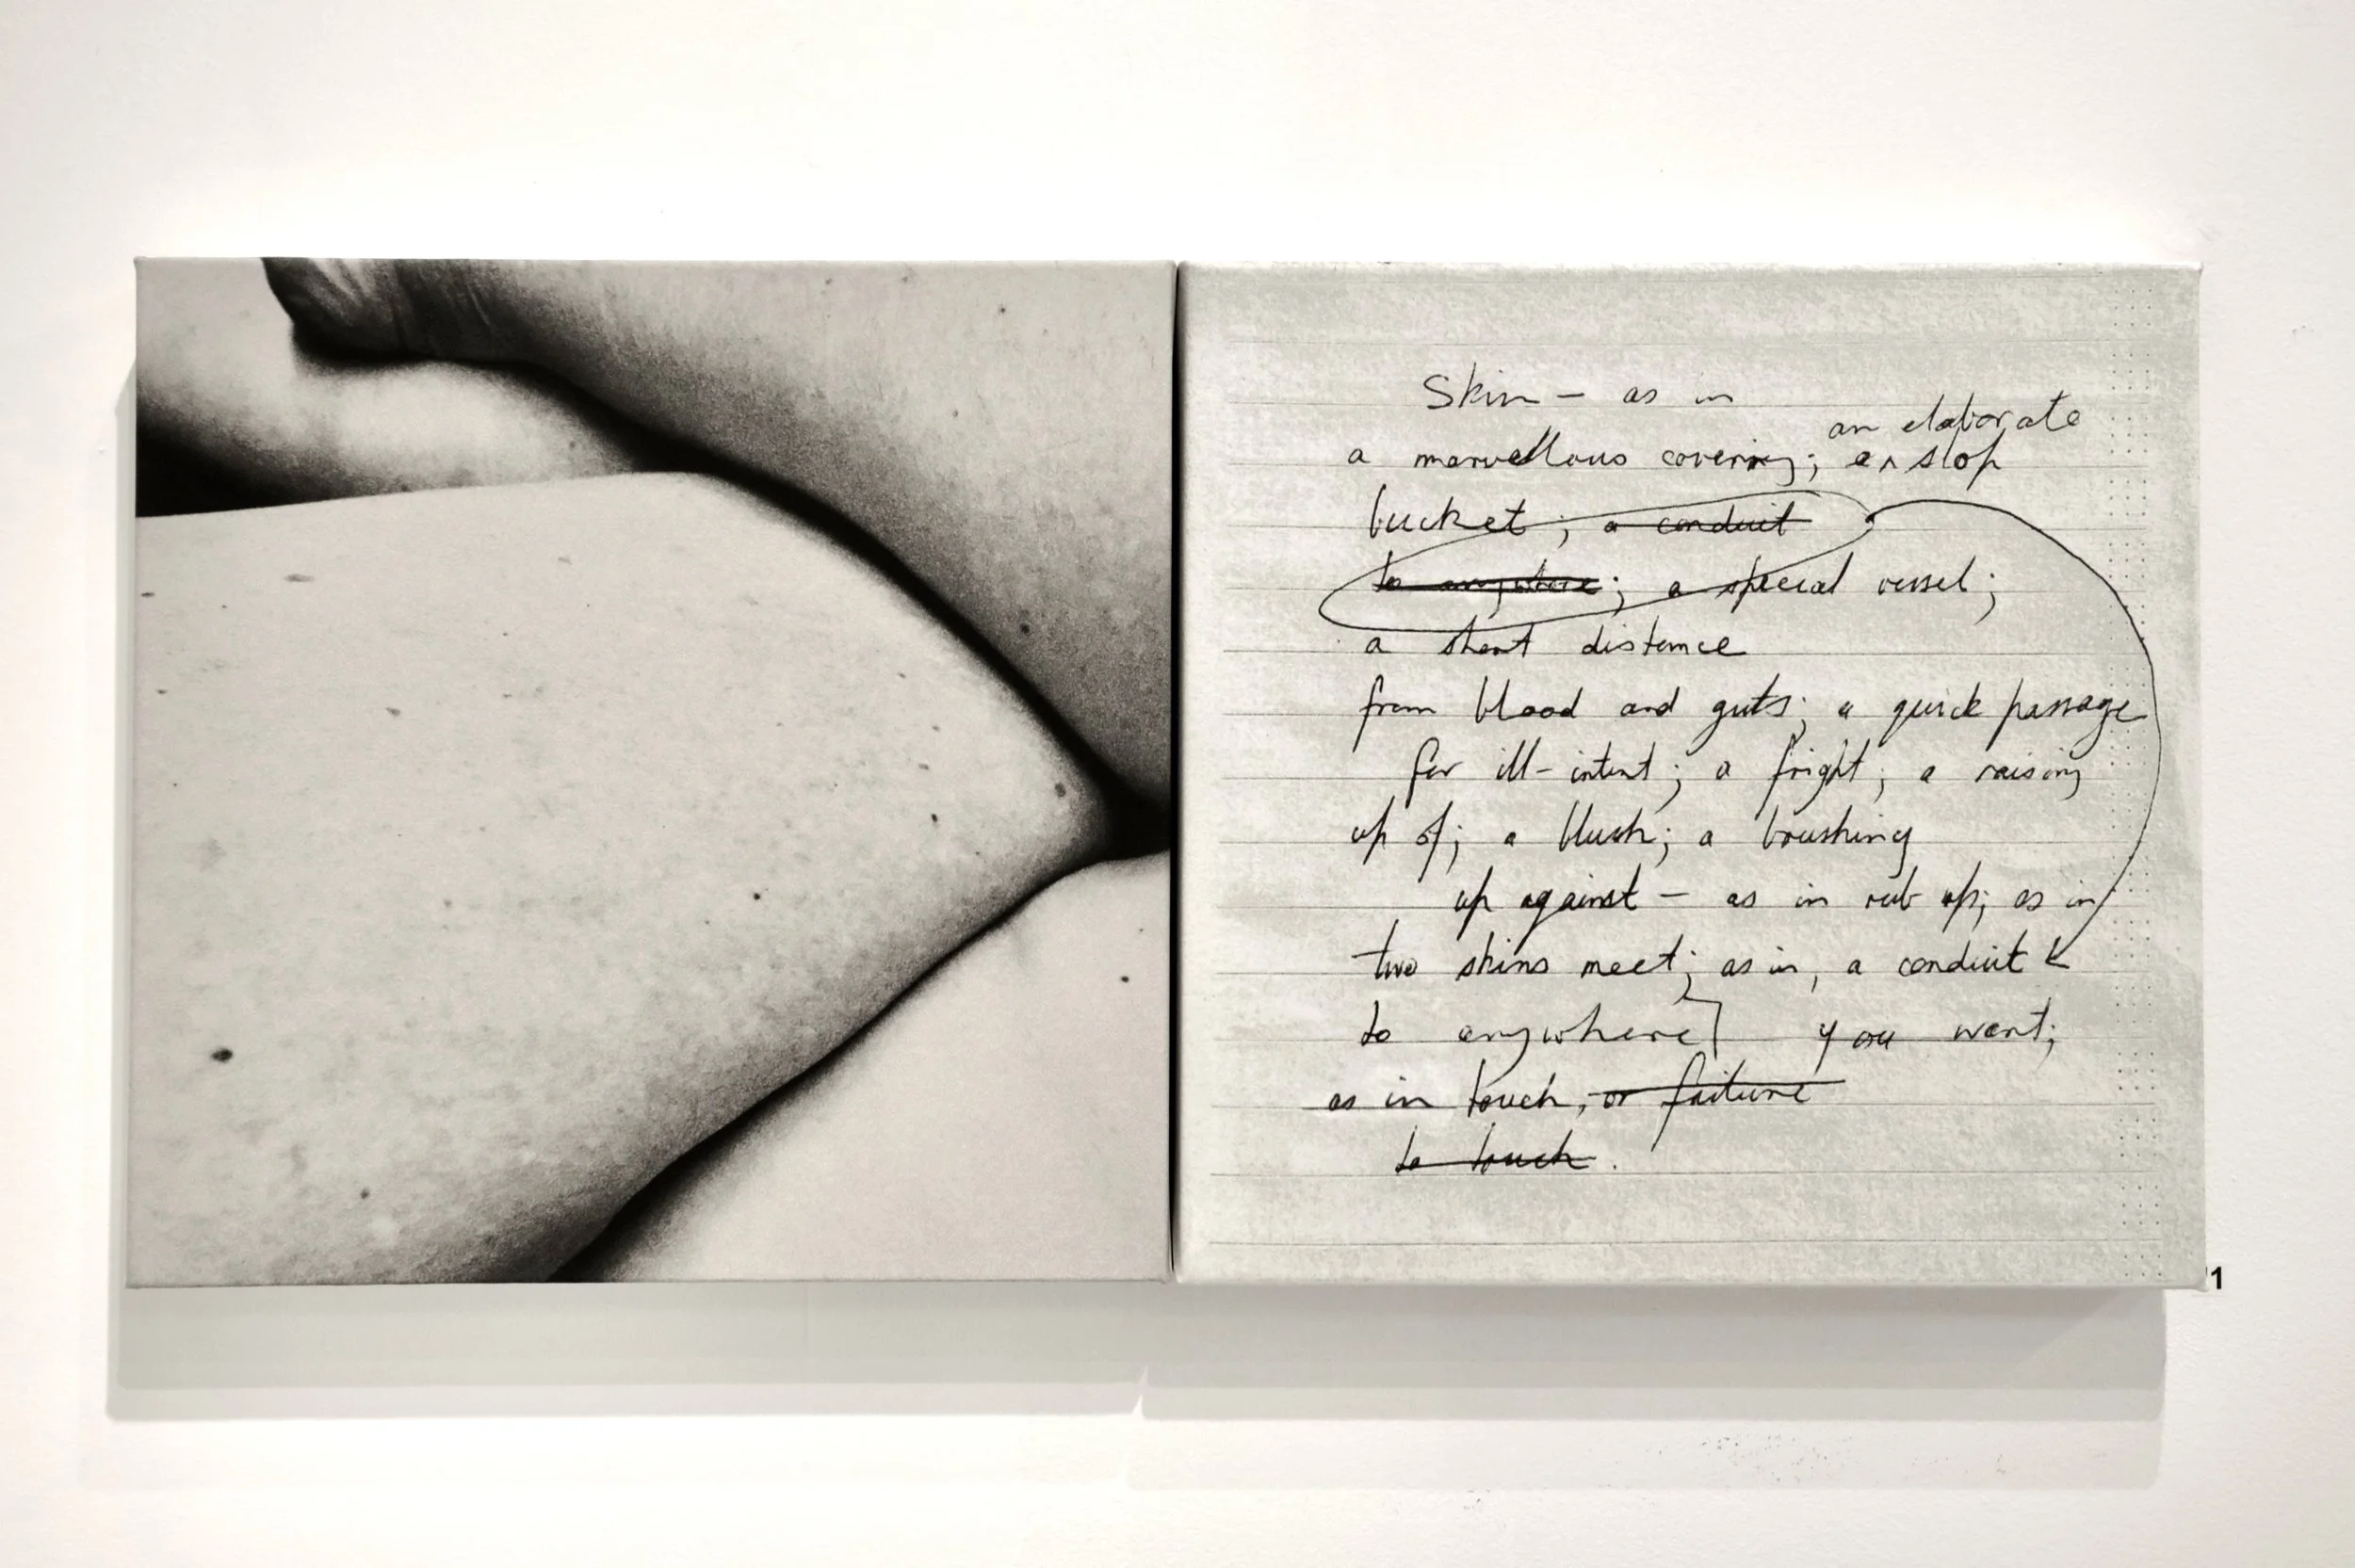 Skin — as in
an elaborate
a marvellous covering; a ^ slop
bucket; a conduit
to anywhere; a special vessel;
a short distance
from blood and guts; a quick passage
for ill-intent; a fright; a raising
up of; a blush; a brushing
up against — as in rub up; as in
two skins meet; as in, a conduit
to anywhere] you want;
as in touch, or failure
to touch.
'1